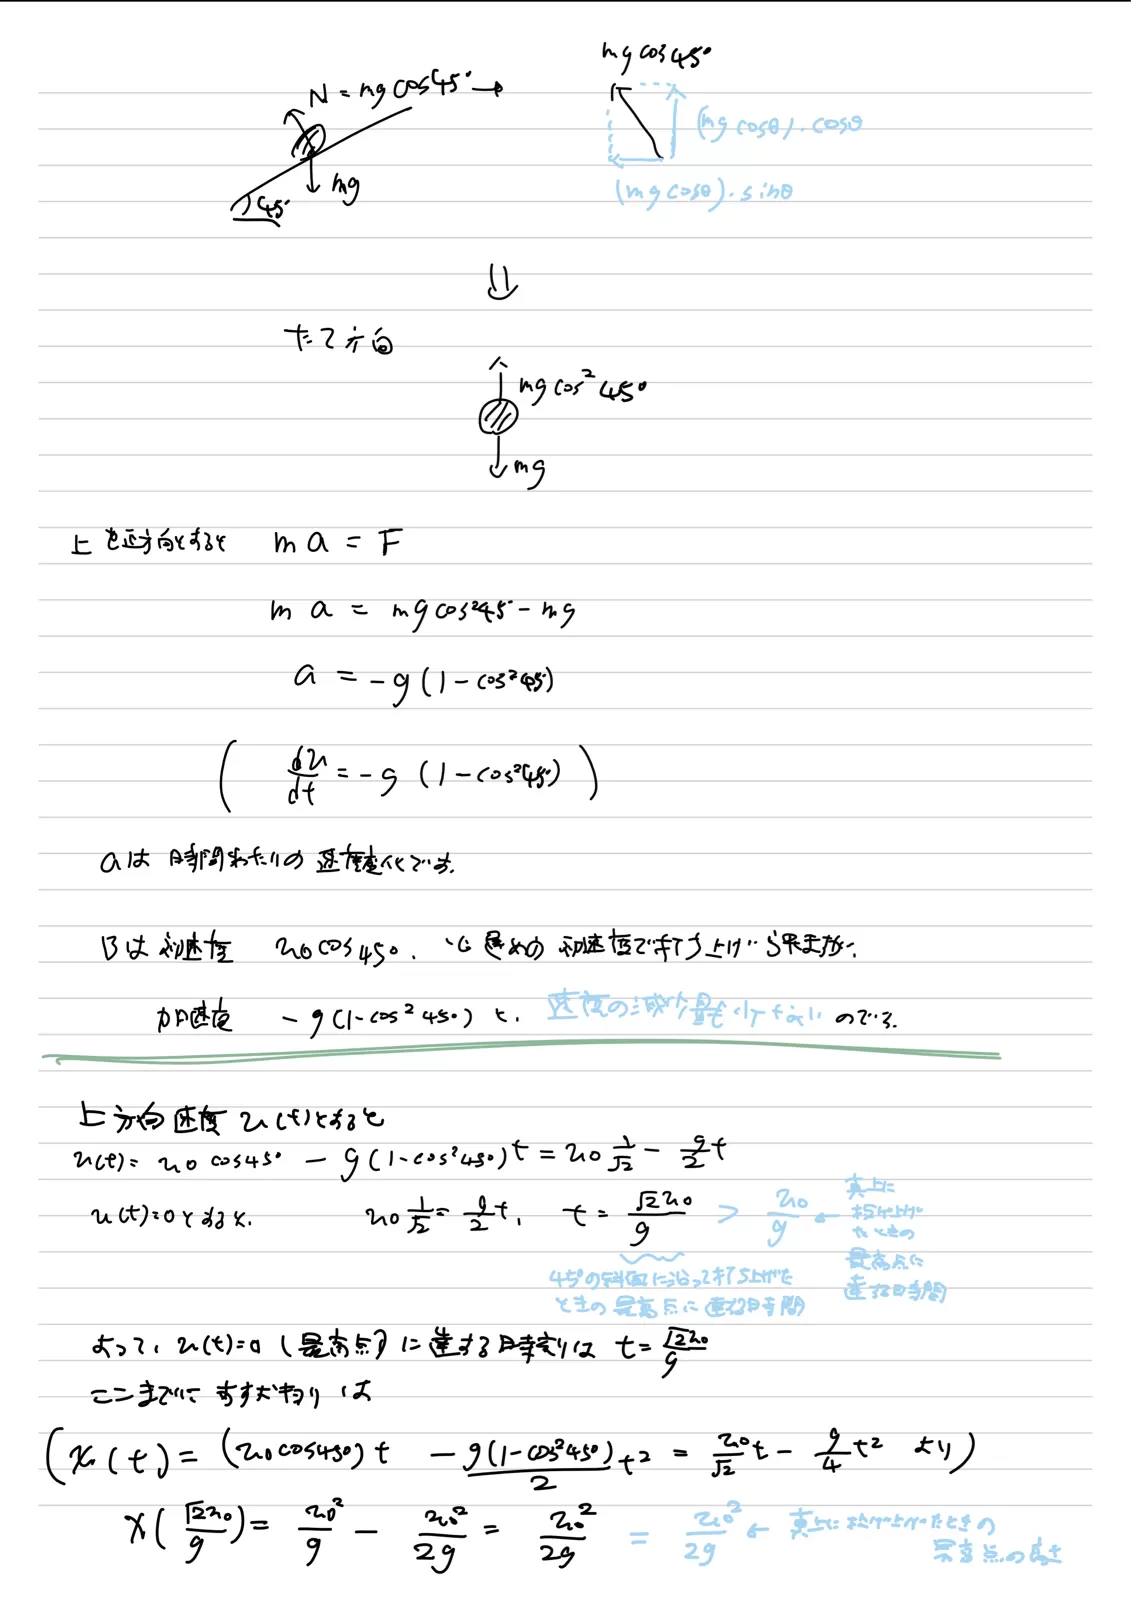 mg cos45°
N = mg cos45° →
(mg cosθ)・cosθ
mg
(mg cosθ)・sinθ
45°
⇓
たて方向
mg cos²45°
mg
上を正方向とすると ma = F
ma = mg cos²45° - mg
a = -g(1-cos²45°)
( du/dt = -g (1-cos²45°) )
aは時間あたりの速度変化です.
Bは初速度 u0 cos45°. 初速度で打ち上げられますが、
加速度 -g(1-cos²45°) と、速度の減少量も少ないので.
上方向速度 u(t)とすると
u(t) = u0 cos45° - g(1-cos²45°)t = u0 1/√2 - g/2 t
u(t)=0とすると、 u0 1/√2 = g/2 t, t = √2u0/g > u0/g ← 真上に
投げ上げ
たときの
最高点に
達する時間
45°の斜面に沿って打ち上げた
ときの最高点に達する時間
よって、u(t)=0 (最高点)に達する時刻は t=√2u0/g
ここまでに すすむキョリは
(x(t) = (u0cos45°)t - g(1-cos²45°)/2 t² = u0/√2 t - g/4 t² より)
x(√2u0/g) = u0²/g - u0²/2g = u0²/2g = u0²/2g ← 真上に投げ上げたときの
最高点の高さ